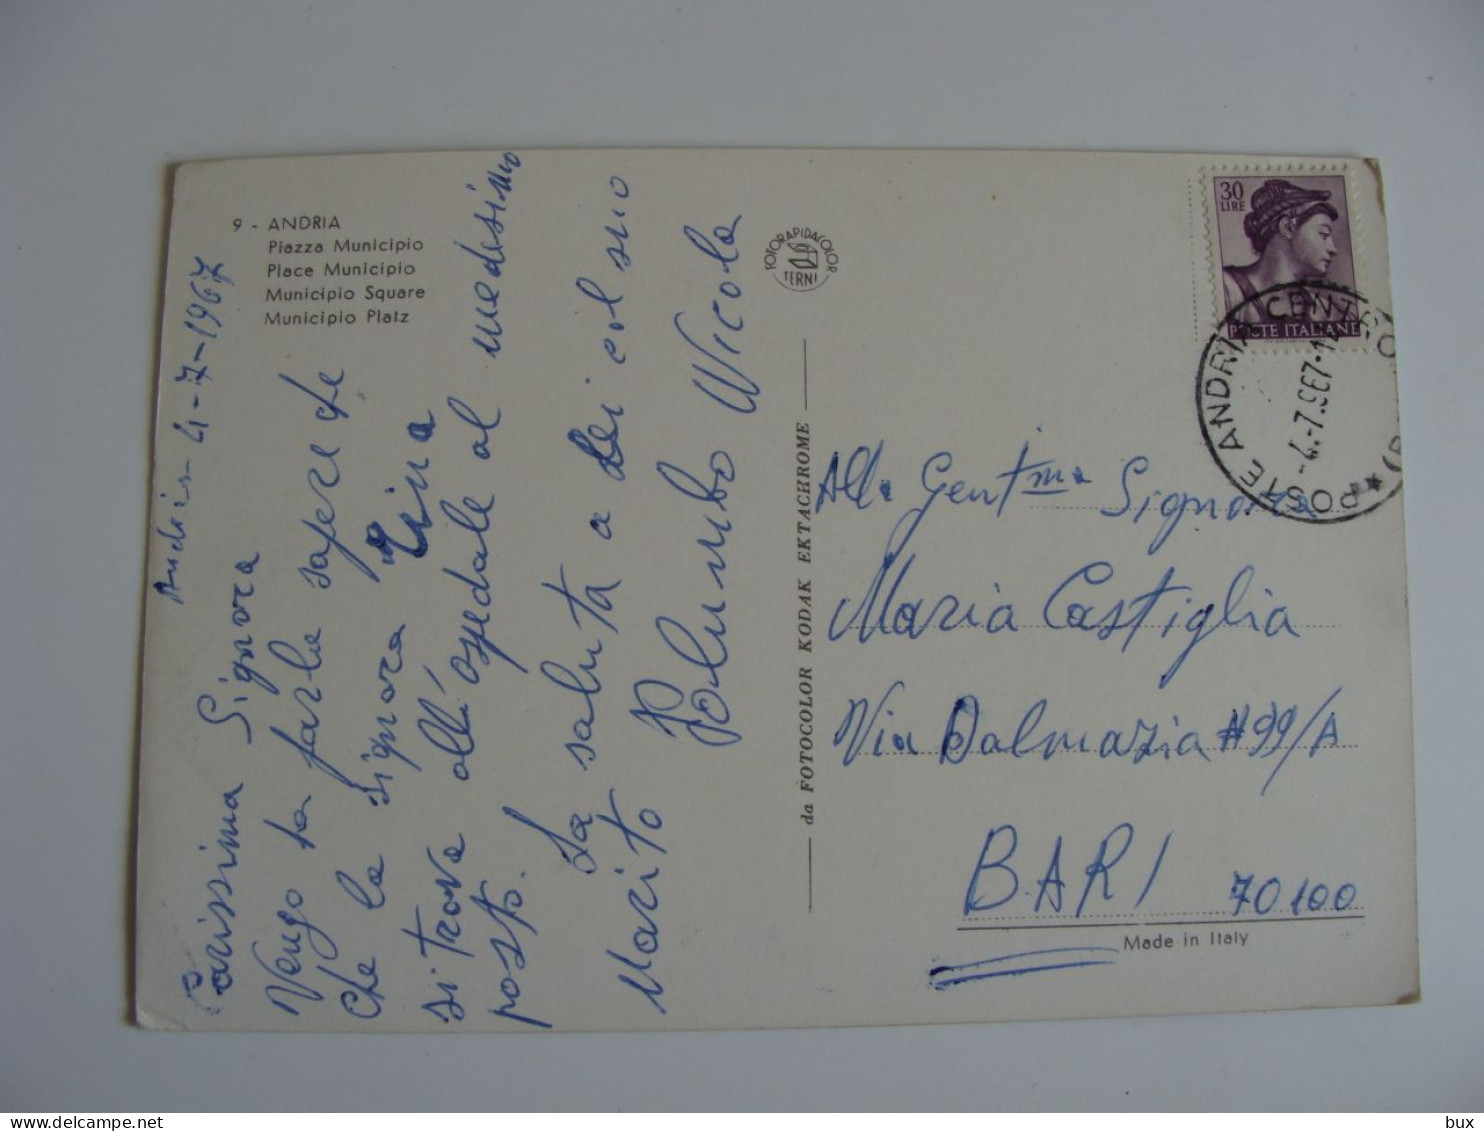 9 - ANDRIA
Piazza Municipio
Place Municipio
Municipio Square
Municipio Platz
Andria 4-7-1967
Carissima Signora
Vengo to farle sapere che
che la signora Lina
si trova all'ospedale al medesimo
posto.
La saluta a lei col suo
Marito
Palumbo Nicola
FOTORAPIDACOLOR
TERNI
da FOTOCOLOR KODAK EKTACHROME
30
LIRE
POSTE ITALIANE
POSTE ANDRIA CENTRO
-4.-7.967.12
Alla Gentma Signora
Maria Castiglia
Via Dalmazia #99/A
BARI 70100
Made in Italy
Italy
bux